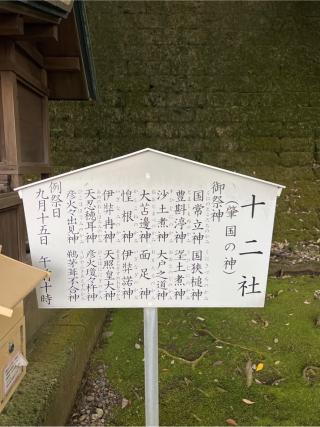 十二社
（肇国の神）
御祭神
国常立神 国狭槌神
豊斟渟神 埿土煮神
沙土煮神 大戸之道神
大苫邊神 面足神
惶根神 伊弉諾神
伊弉冉神 天照皇大神
天忍穂耳神 彦火瓊々杵神
彦火々出見神 鵜茅葺不合神
例祭日
九月十五日 午前十時